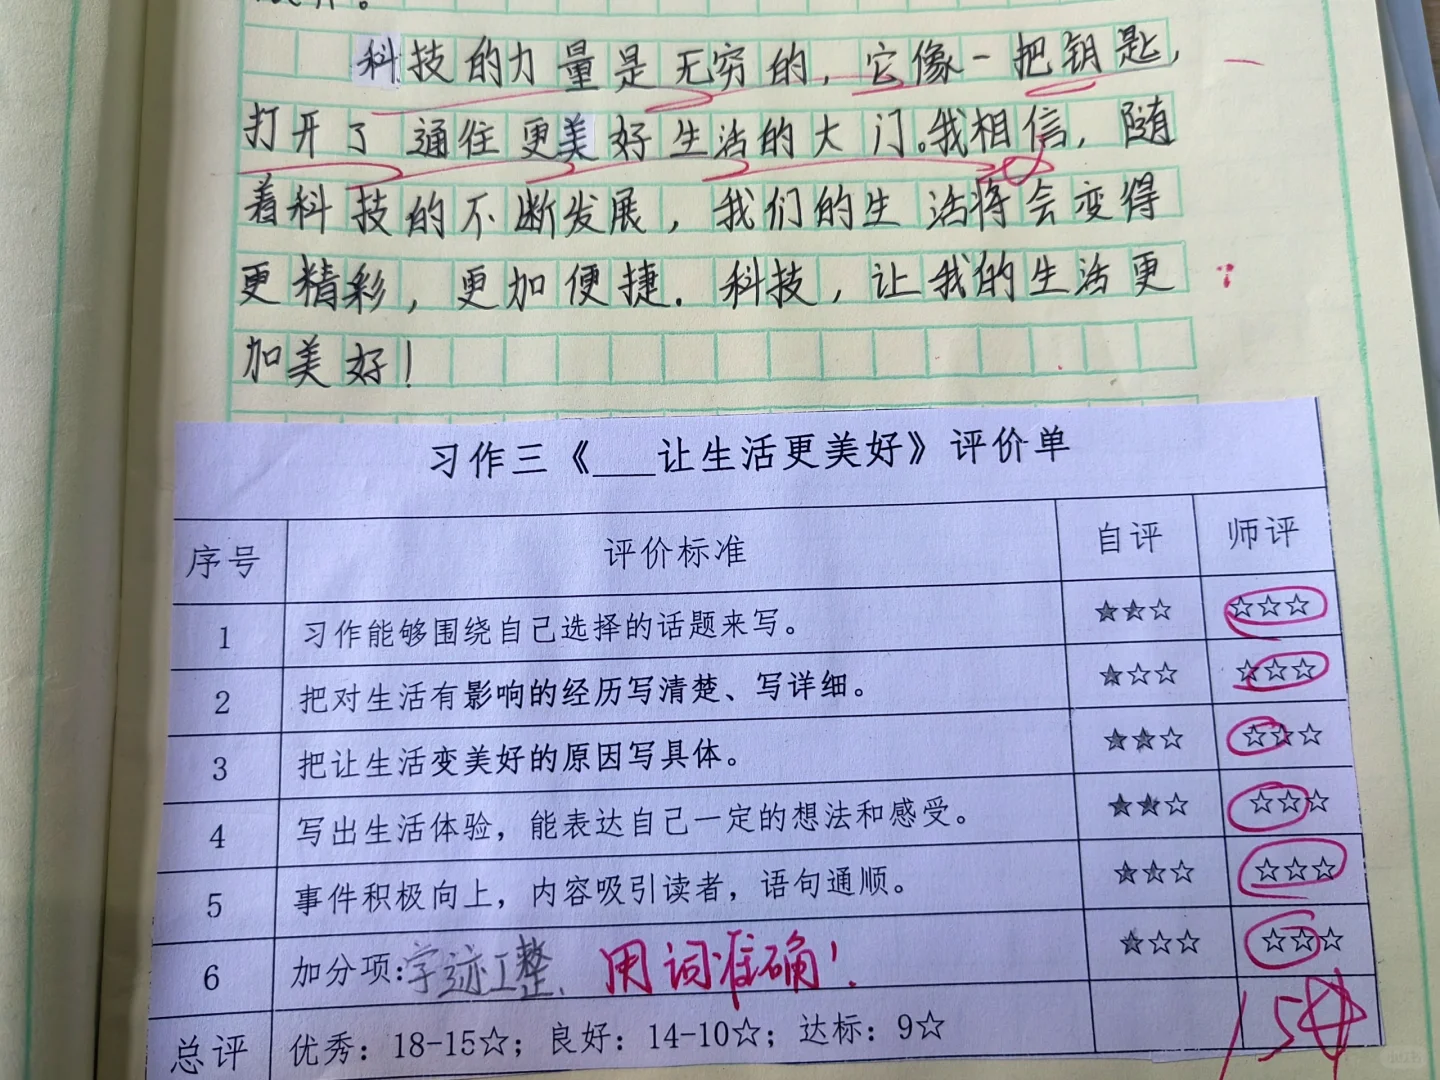 科技的力量是无穷的，它像一把钥匙，
打开了通往更美好生活的大门。我相信，随
着科技的不断发展，我们的生活将会变得
更精彩，更加便捷。科技，让我的生活更
加美好！
习作三《___让生活更美好》评价单
序号 评价标准 自评 师评
1 习作能够围绕自己选择的话题来写。 ★★☆ ☆☆☆
2 把对生活有影响的经历写清楚、写详细。 ★☆☆ ☆☆☆
3 把让生活变美好的原因写具体。 ★★☆ ☆☆☆
4 写出生活体验，能表达自己一定的想法和感受。 ★★☆ ☆☆☆
5 事件积极向上，内容吸引读者，语句通顺。 ★★☆ ☆☆☆
6 加分项：字迹工整、用词准确！ ★☆☆ ☆☆☆
总评 优秀：18-15☆；良好：14-10☆；达标：9☆ 15☆